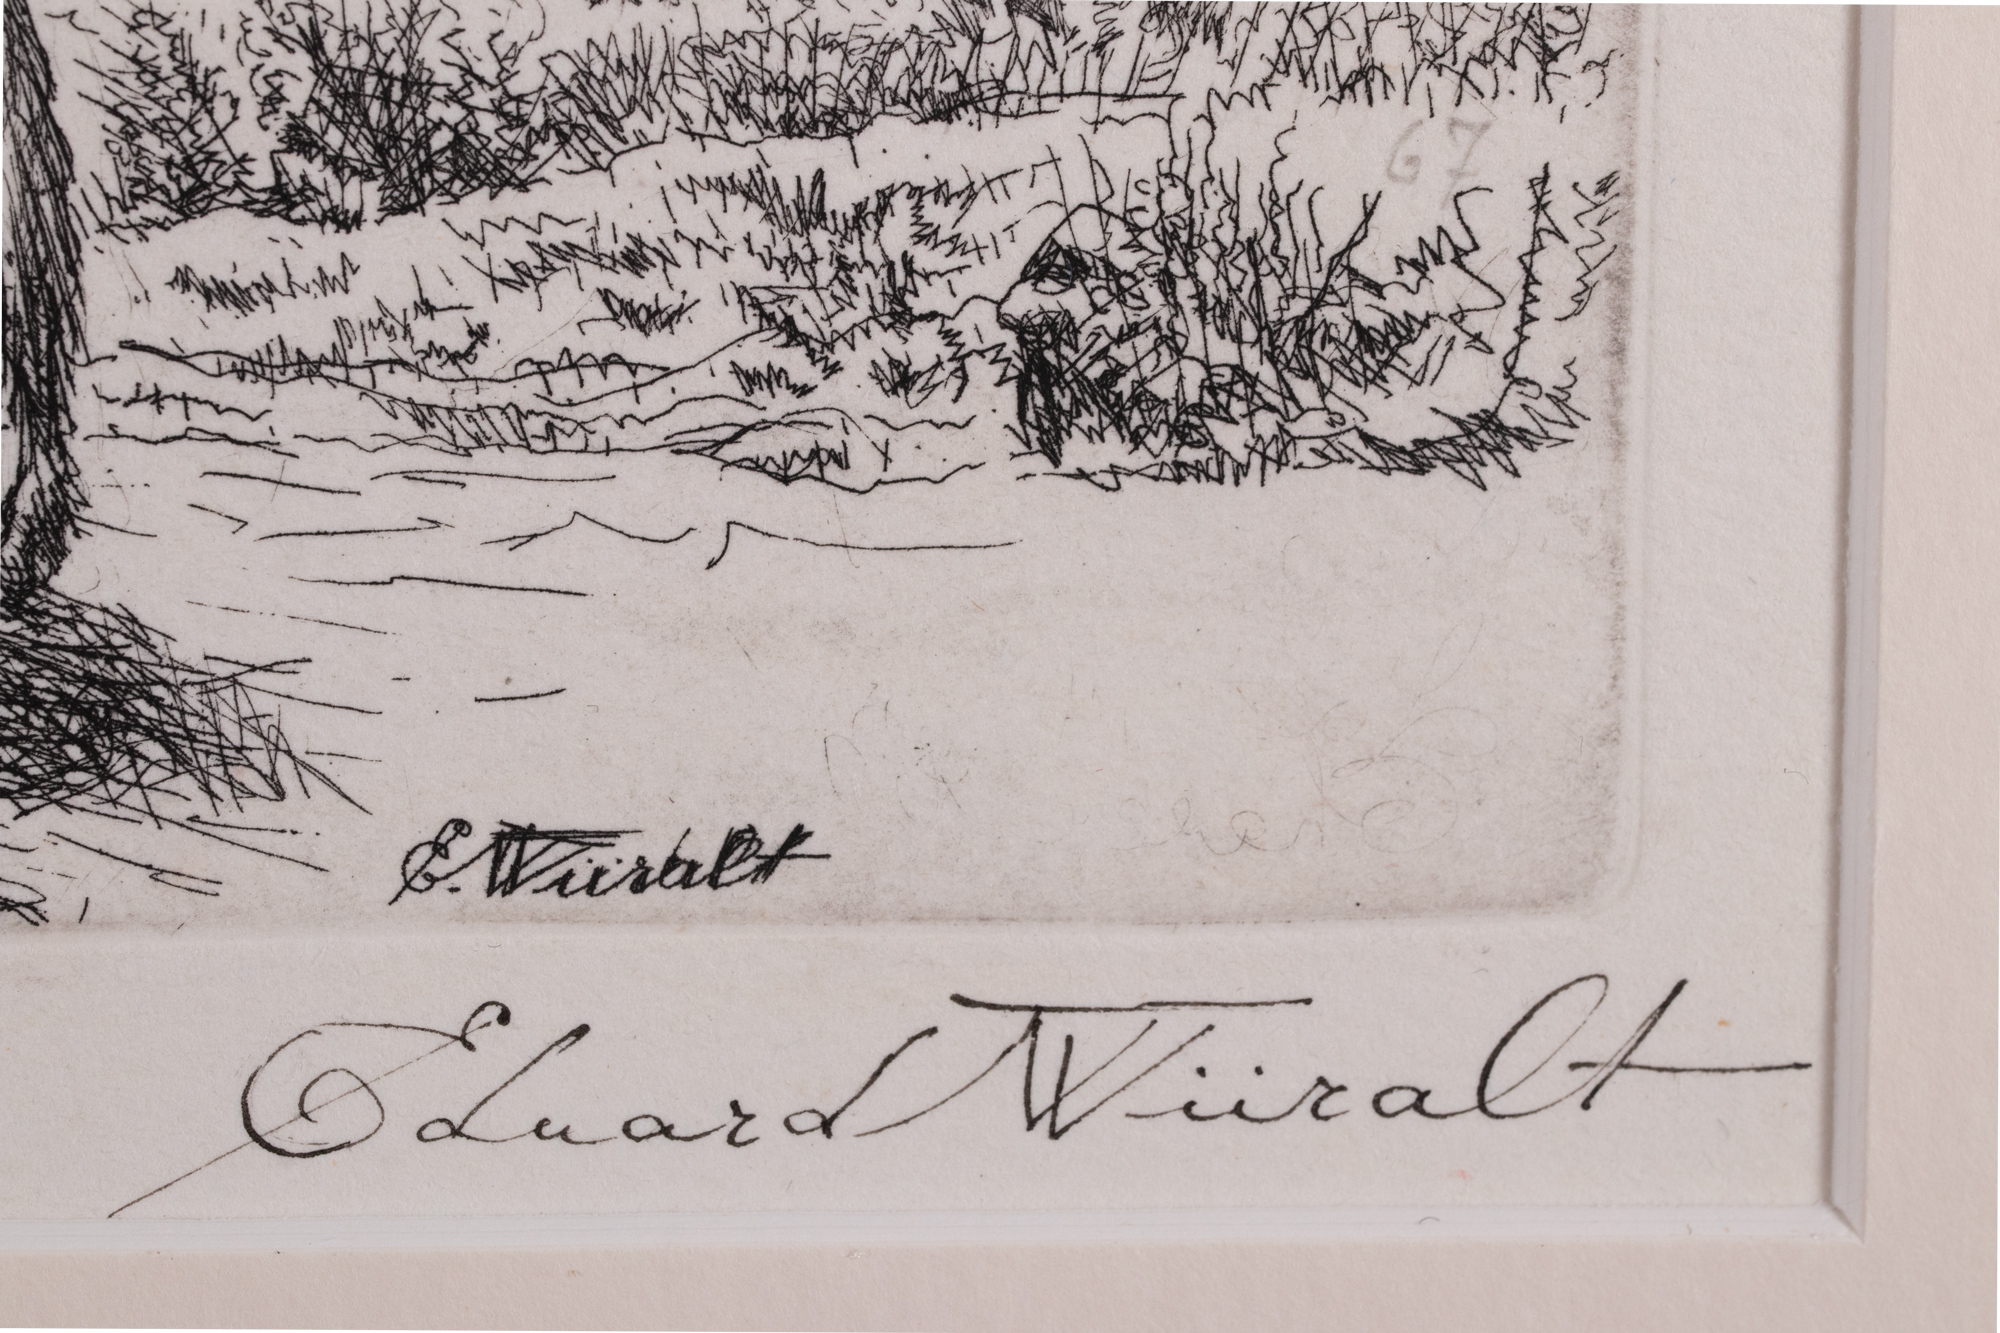 67
E. Wiiralt
Eduard Wiiralt